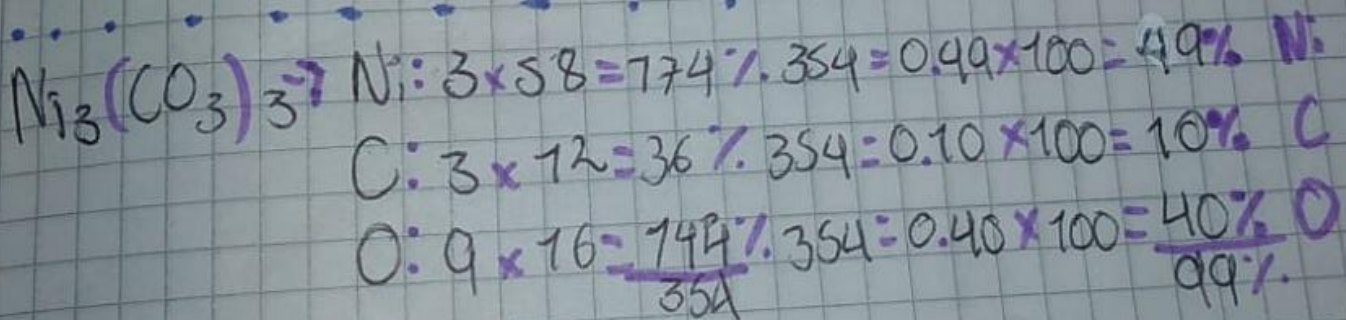 Ni3(CO3)3→ Ni: 3×58=174%354=0.49×100=49% Ni
C: 3×12=36%354=0.10×100=10% C
O: 9×16=144%354=0.40×100=40% O
354 99%